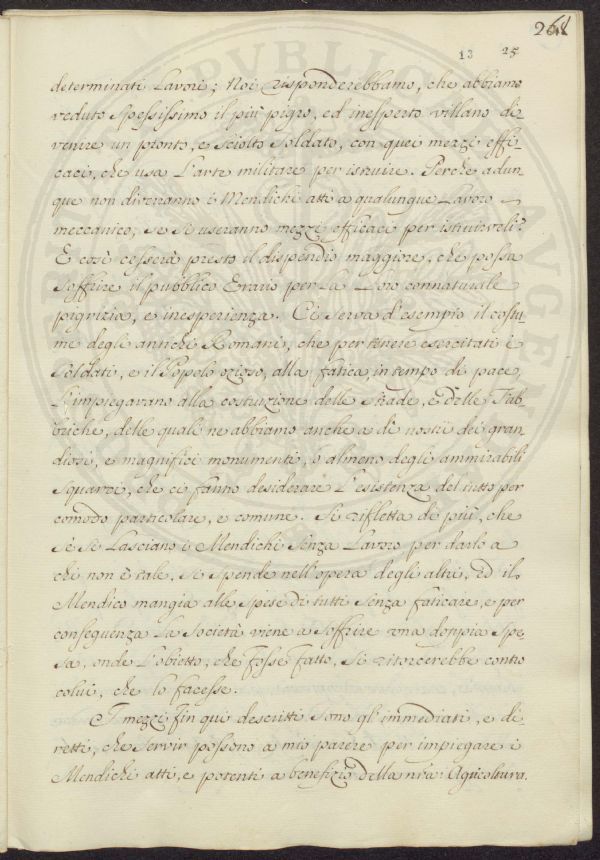 268
13 25
determinati Lavori; Noi risponderebbamo, che abbiamo
veduto spessissimo il più pigro, ed inesperto villano di-
venire un pronto, e sciolto Soldato, con quei mezzi effi-
caci, che usa L'arte militare per istruire. Perche adun-
que non diverranno i Mendichi atti a qualunque Lavoro
meccanico, se si useranno mezzi efficaci per istruirveli?
E così cesserà presto il dispendio maggiore, che possa
soffrire il pubblico Erario per La Loro connaturale
pigrizia, e inesperienza. Ci serva d'esempio il costu-
me degli antichi Romani, che per tenere esercitati i
Soldati, e il Popolo ozioso, alla fatica, in tempo di pace,
L'impiegavano alla costruzione delle Strade, e delle Fab-
briche, delle quali ne abbiamo anche a dì nostri dei gran-
diosi, e magnifici monumenti, o almeno degli ammirabili
squarzi, che ci fanno desiderare L'esistenza del tutto per
comodo particolare, e comune. Si rifletta di più, che
se si Lasciano i Mendichi senza Lavoro per darlo a
chi non è tale, si spende nell'opera degli altri, ed il
Mendico mangia alle spese di tutti senza faticare, e per
conseguenza La società viene a soffrire una doppia spe-
sa, onde L'obietto, che fosse fatto, si ritorcerebbe contro
colui, che lo facesse.
I mezzi fin quì descritti sono gl'immediati, e di-
retti, che servir possono a mio parere per impiegare i
Mendichi atti, e potenti a benefizio della nra Agricoltura.
PVBLIC
AVGEN